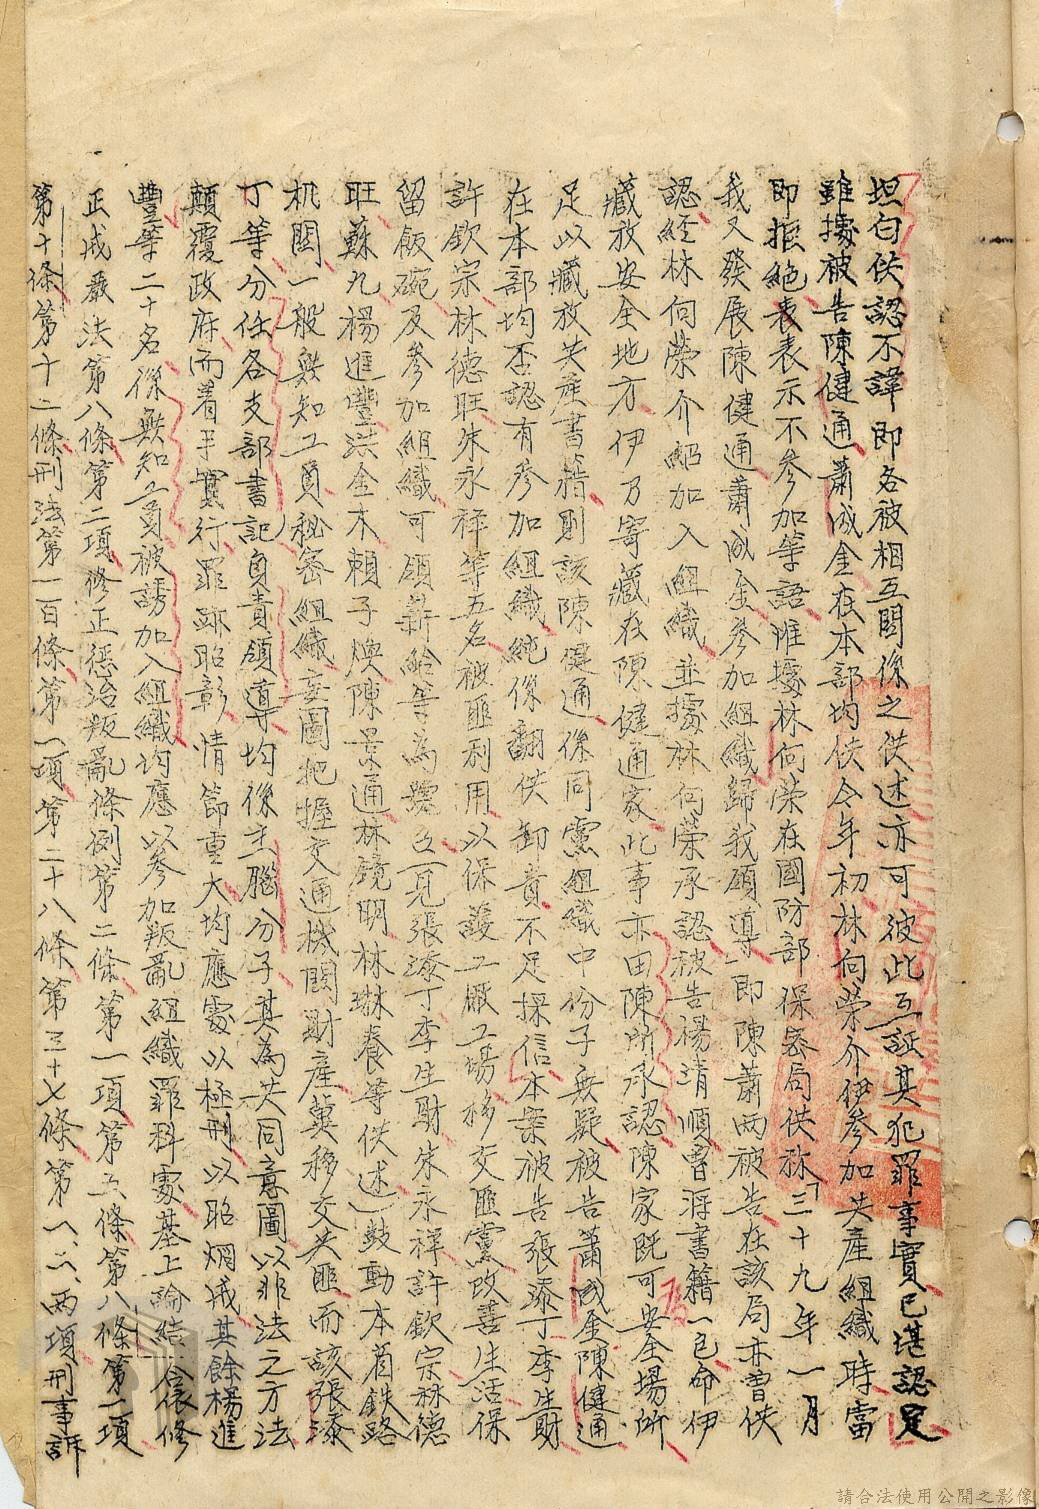 坦白供認不諱即各被相互關係之供述亦可彼此互証其犯罪事實已堪認定
雖據被告陳健通蕭成金在本部均供今年初林向榮介伊參加共產組織時當
即拒絕表表示不參加等語惟據林向榮在國防部保密局供稱「三十九年一月
我又發展陳健通蕭成金參加組織歸我領導」即陳蕭兩被告在該局亦曾供
認經林向榮介紹加入組織並據林向榮承認被告楊清順曾將書籍一包命伊
藏放安全地方伊乃寄藏在陳健通家此事亦由陳所承認陳家既可為安全場所
足以藏放共產書籍則該陳健通係同黨組織中份子無疑被告蕭成金陳健通
在本部均否認有參加組織純係翻供卸責不足採信本案被告張添丁李生財
許欽宗林德旺朱永祥等五名被匪利用以保護工廠工場移交匪黨改善生活保
留飯碗及參加組織可領薪給等為號召(見張添丁李生財朱永祥許欽宗林德
旺蘇九楊進豐洪金木賴子煥陳景通林鏡明林琳養等供述)鼓動本省鉄路
机関一般無知工員秘密組織妄圖把握交通機関財產冀移交共匪而該張添
丁等分任各支部書記負責領導均係主腦分子其為共同意圖以非法之方法
顛覆政府而着手實行罪跡昭彰情節重大均應處以極刑以昭炯戒其餘楊進
豐等二十名係無知工員被誘加入組織均應以參加叛亂組織罪科處基上論結合依修
正戒嚴法第八條第二項修正懲治叛亂條例第二條第一項第五條第八條第一項
第十條第十二條刑法第一百條第一項第二十八條第三十七條第一、二、兩項刑事訴
請合法使用公開之影像